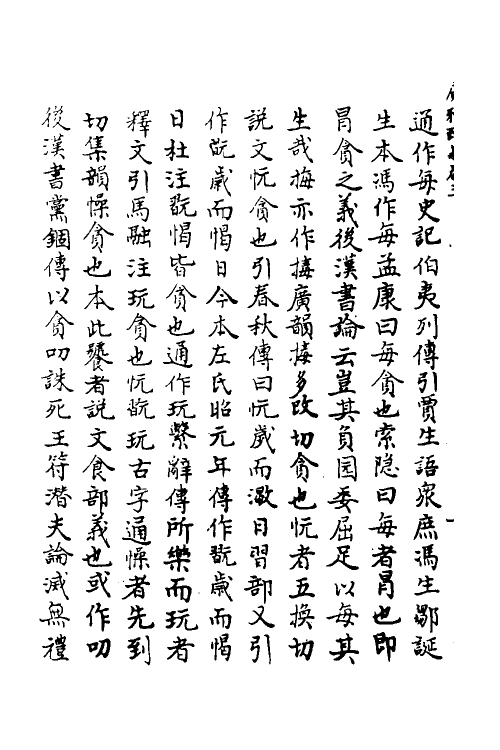 通作每史記伯夷列傳引賈生語衆庶馮生鄒誕
生本馮作每孟康曰每貪也索隐曰每者冒也即
冒貪之義後漢書論云豈其負国委屈足以每其
生哉挴亦作㨒廣韻㨒多改切貪也忨者五換切
說文忨貪也引春秋傳曰忨歲而㵣日習部又引
作翫歲而愒日今本左氏昭元年傳作翫歲而愒
日杜注翫愒皆貪也通作玩繫辭傳所樂而玩者
釋文引馬融注玩貪也忨翫玩古字通懆者先到
切集韻懆貪也本此饕者說文食部義也或作叨
後漢書黨錮傳以貪叨誅死王符潛夫論滅無禮